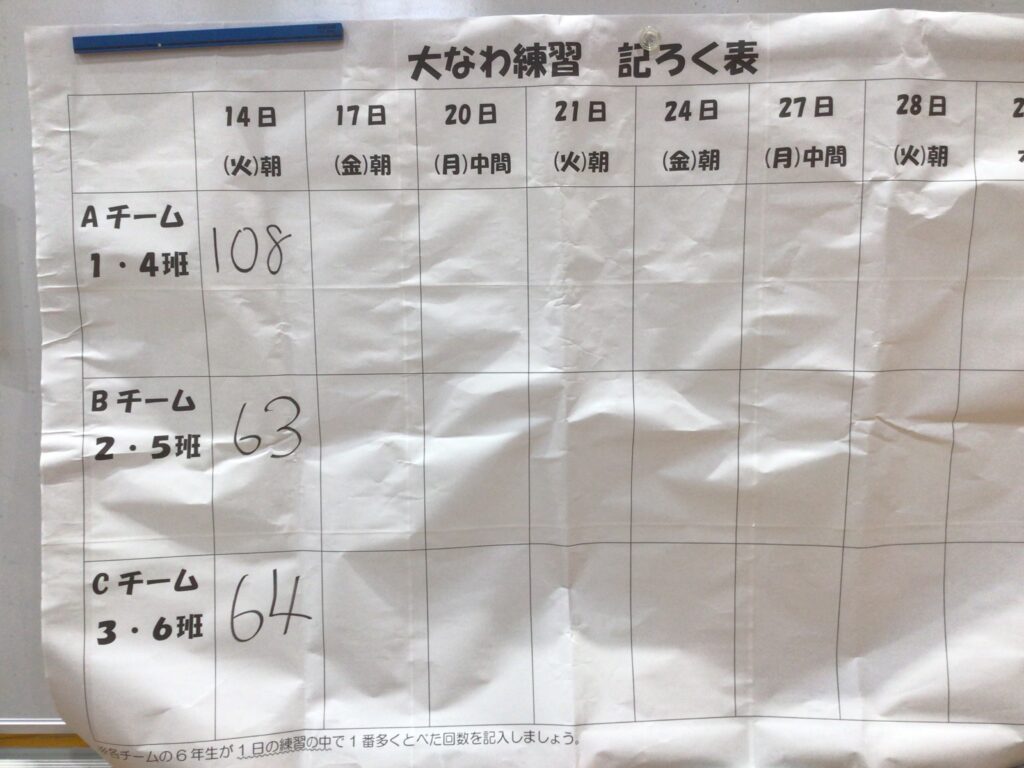 大なわ練習 記ろく表
14日 17日 20日 21日 24日 27日 28日 2
(火)朝 (金)朝 (月)中間 (火)朝 (金)朝 (月)中間 (火)朝
Aチーム
1・4班 108
Bチーム
2・5班 63
Cチーム
3・6班 64
各チームの6年生が1日の練習の中で1番多くとべた回数を記入しましょう。